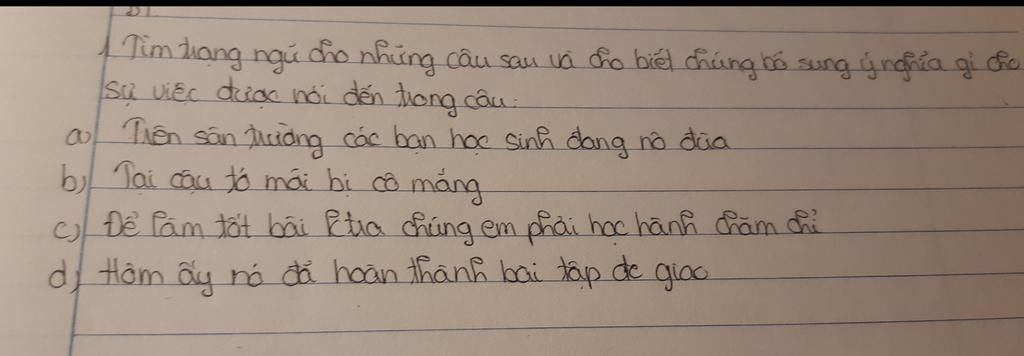 1 Tìm trạng ngữ cho những câu sau và cho biết chúng bổ sung ý nghĩa gì cho
sự việc được nói đến trong câu:
a) Trên sân trường các bạn học sinh đang nô đùa
b) Tại cậu tớ mãi bị cô mắng
c) Để làm tốt bài ktra chúng em phải học hành chăm chỉ
d) Hôm ấy nó đã hoàn thành bài tập đc giao